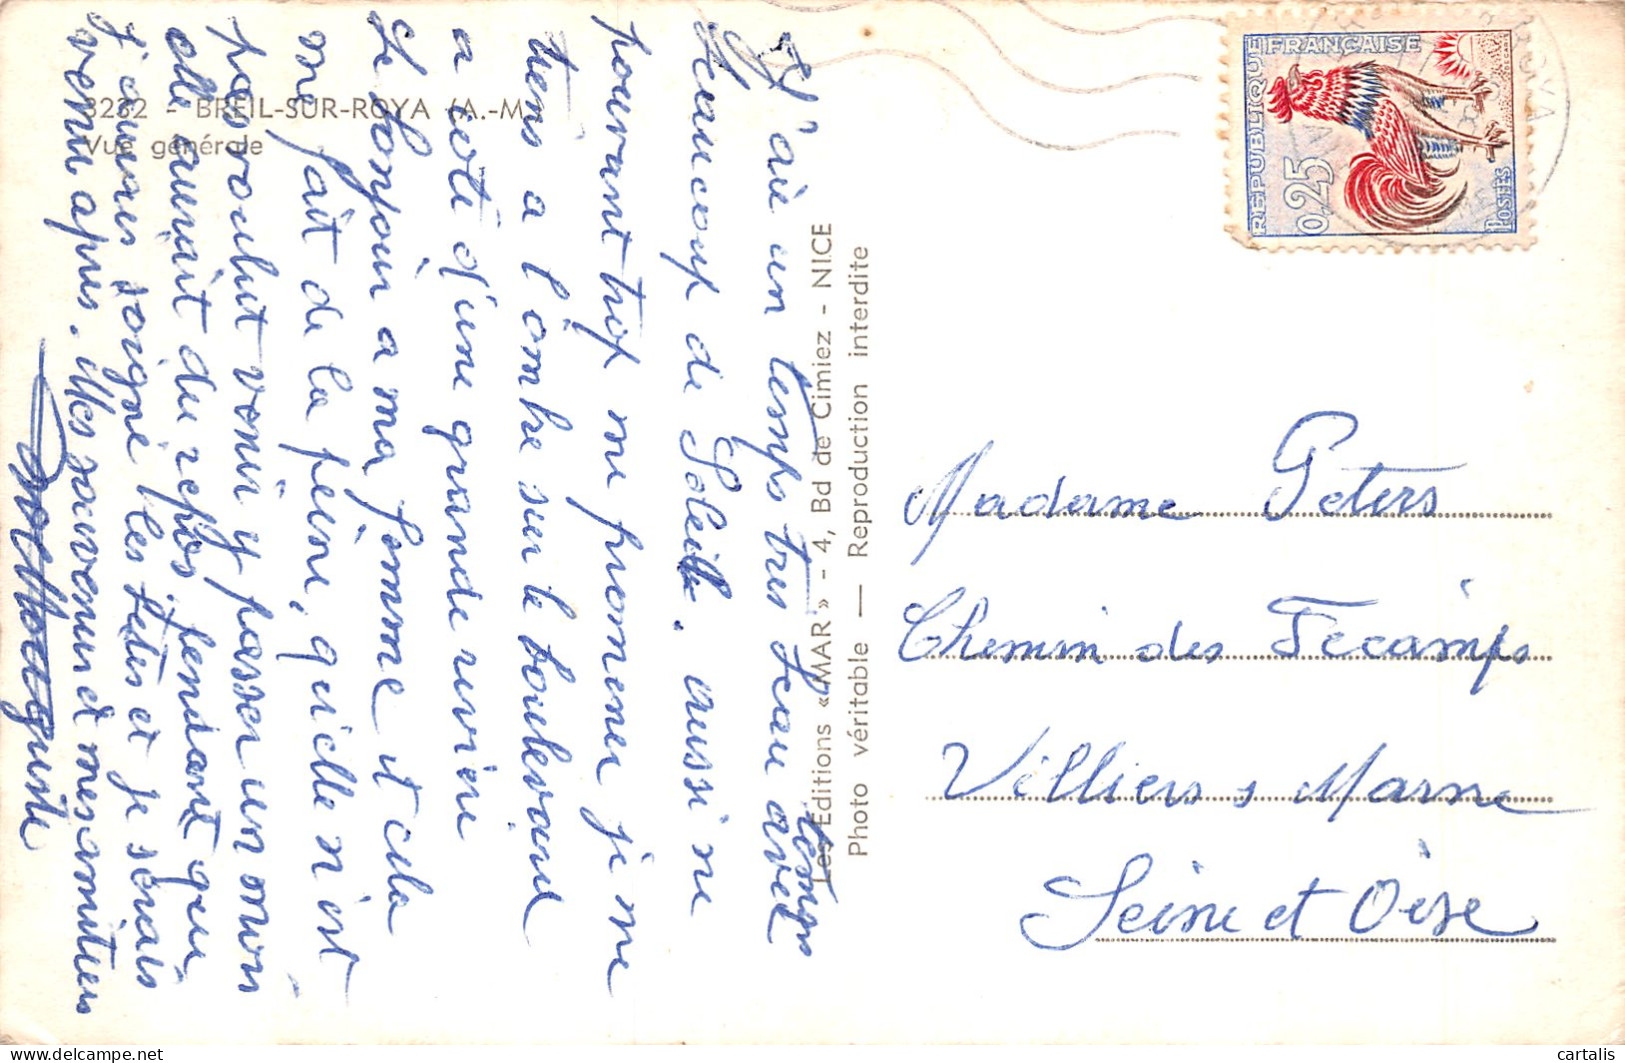 3232 - BREIL-SUR-ROYA (A.-M.)
Vue générale
J'ais un temps tres beau avec
temps
beaucoup de Soleille. aussi ne
pouvant trop me promener je me
tiens a l'ombre sur le boulevard
a coté d'une grande riviere
Le bonjour a ma femme et cela
me fait de la peine, qu'elle n'est
pas voulut venir y passer un mois
elle aurait du repos, pendant que
j'aurais soigné les bêtes et je serais
venu apres. Mes souvenirs et mes amities
Les Editions «MAR» - 4, Bd de Cimiez - NICE
Photo véritable — Reproduction interdite
REPUBLIQUE FRANÇAISE
0,25
POSTES
ROYA
Madame Peters
Chemin des Fécamps
Villiers s Marne
Seine et Oise
cartalis